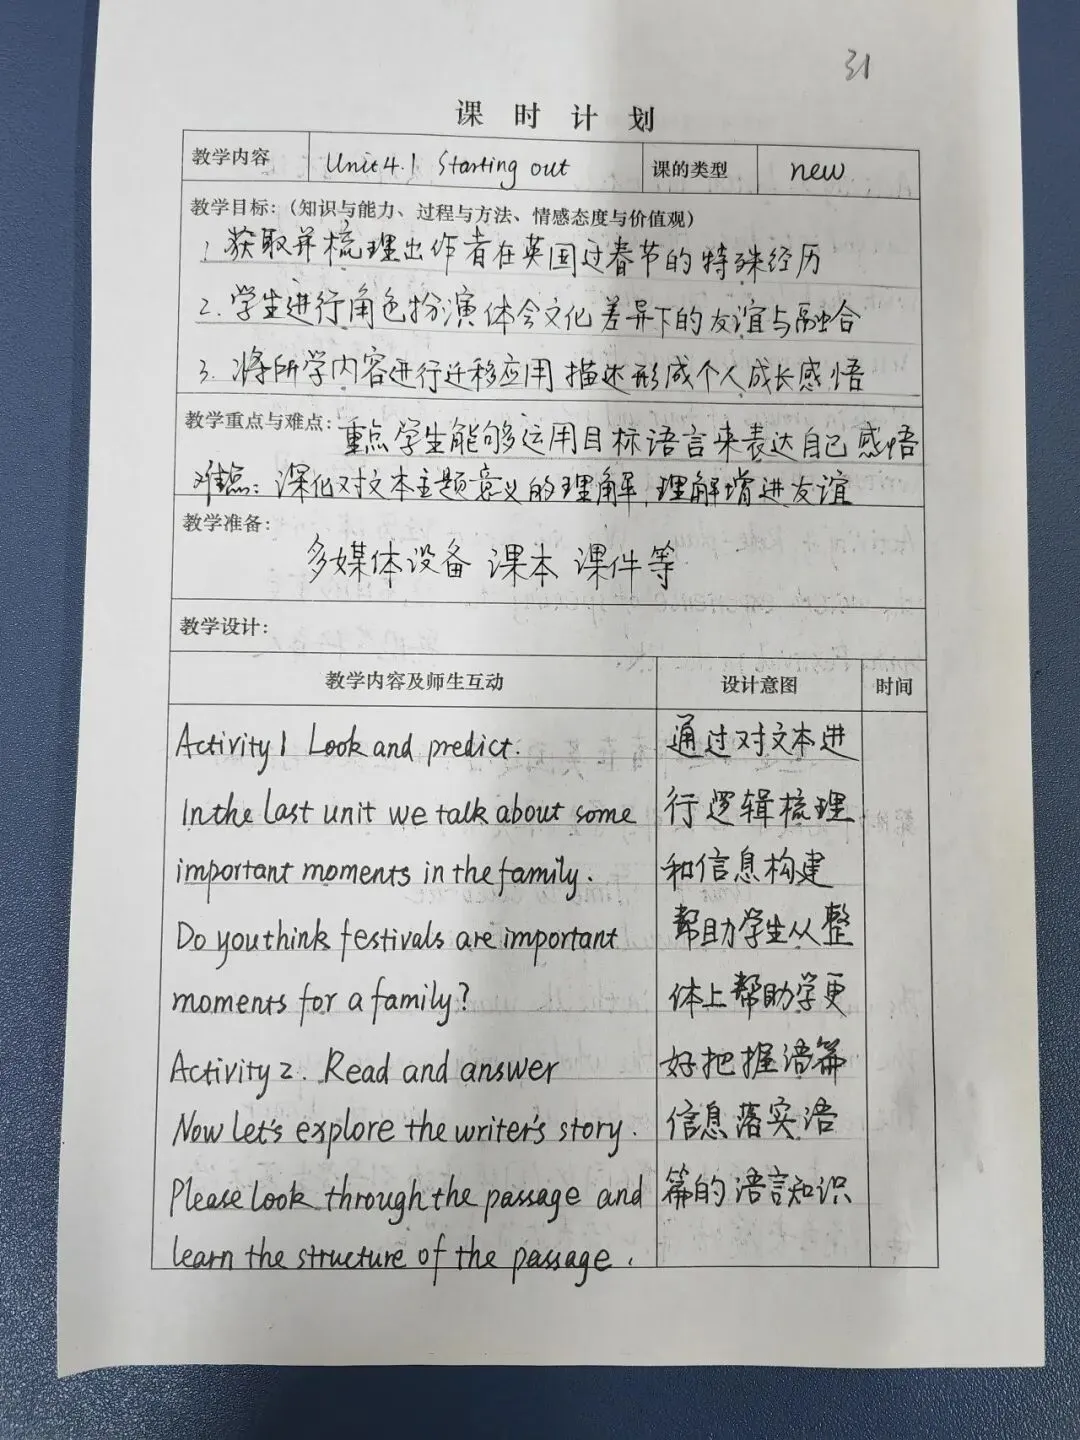 31
课时计划
教学内容 Unit4.1 Starting out 课的类型 new
教学目标:(知识与能力、过程与方法、情感态度与价值观)
1.获取并梳理出作者在英国过春节的特殊经历
2.学生进行角色扮演体会文化差异下的友谊与融合
3.将所学内容进行迁移应用描述形成个人成长感悟
教学重点与难点:重点学生能够运用目标语言来表达自己感悟
难点:深化对文本主题意义的理解,理解增进友谊
教学准备:
多媒体设备 课本 课件等
教学设计:
教学内容及师生互动 设计意图 时间
Activity1 Look and predict. 通过对文本进
In the last unit we talk about some 行逻辑梳理
important moments in the family. 和信息构建
Do you think festivals are important 帮助学生从整
moments for a family? 体上帮助学更
Activity 2. Read and answer 好把握语篇
Now Let's explore the writer's story. 信息落实语
Please look through the passage and 篇的语言知识
learn the structure of the passage.